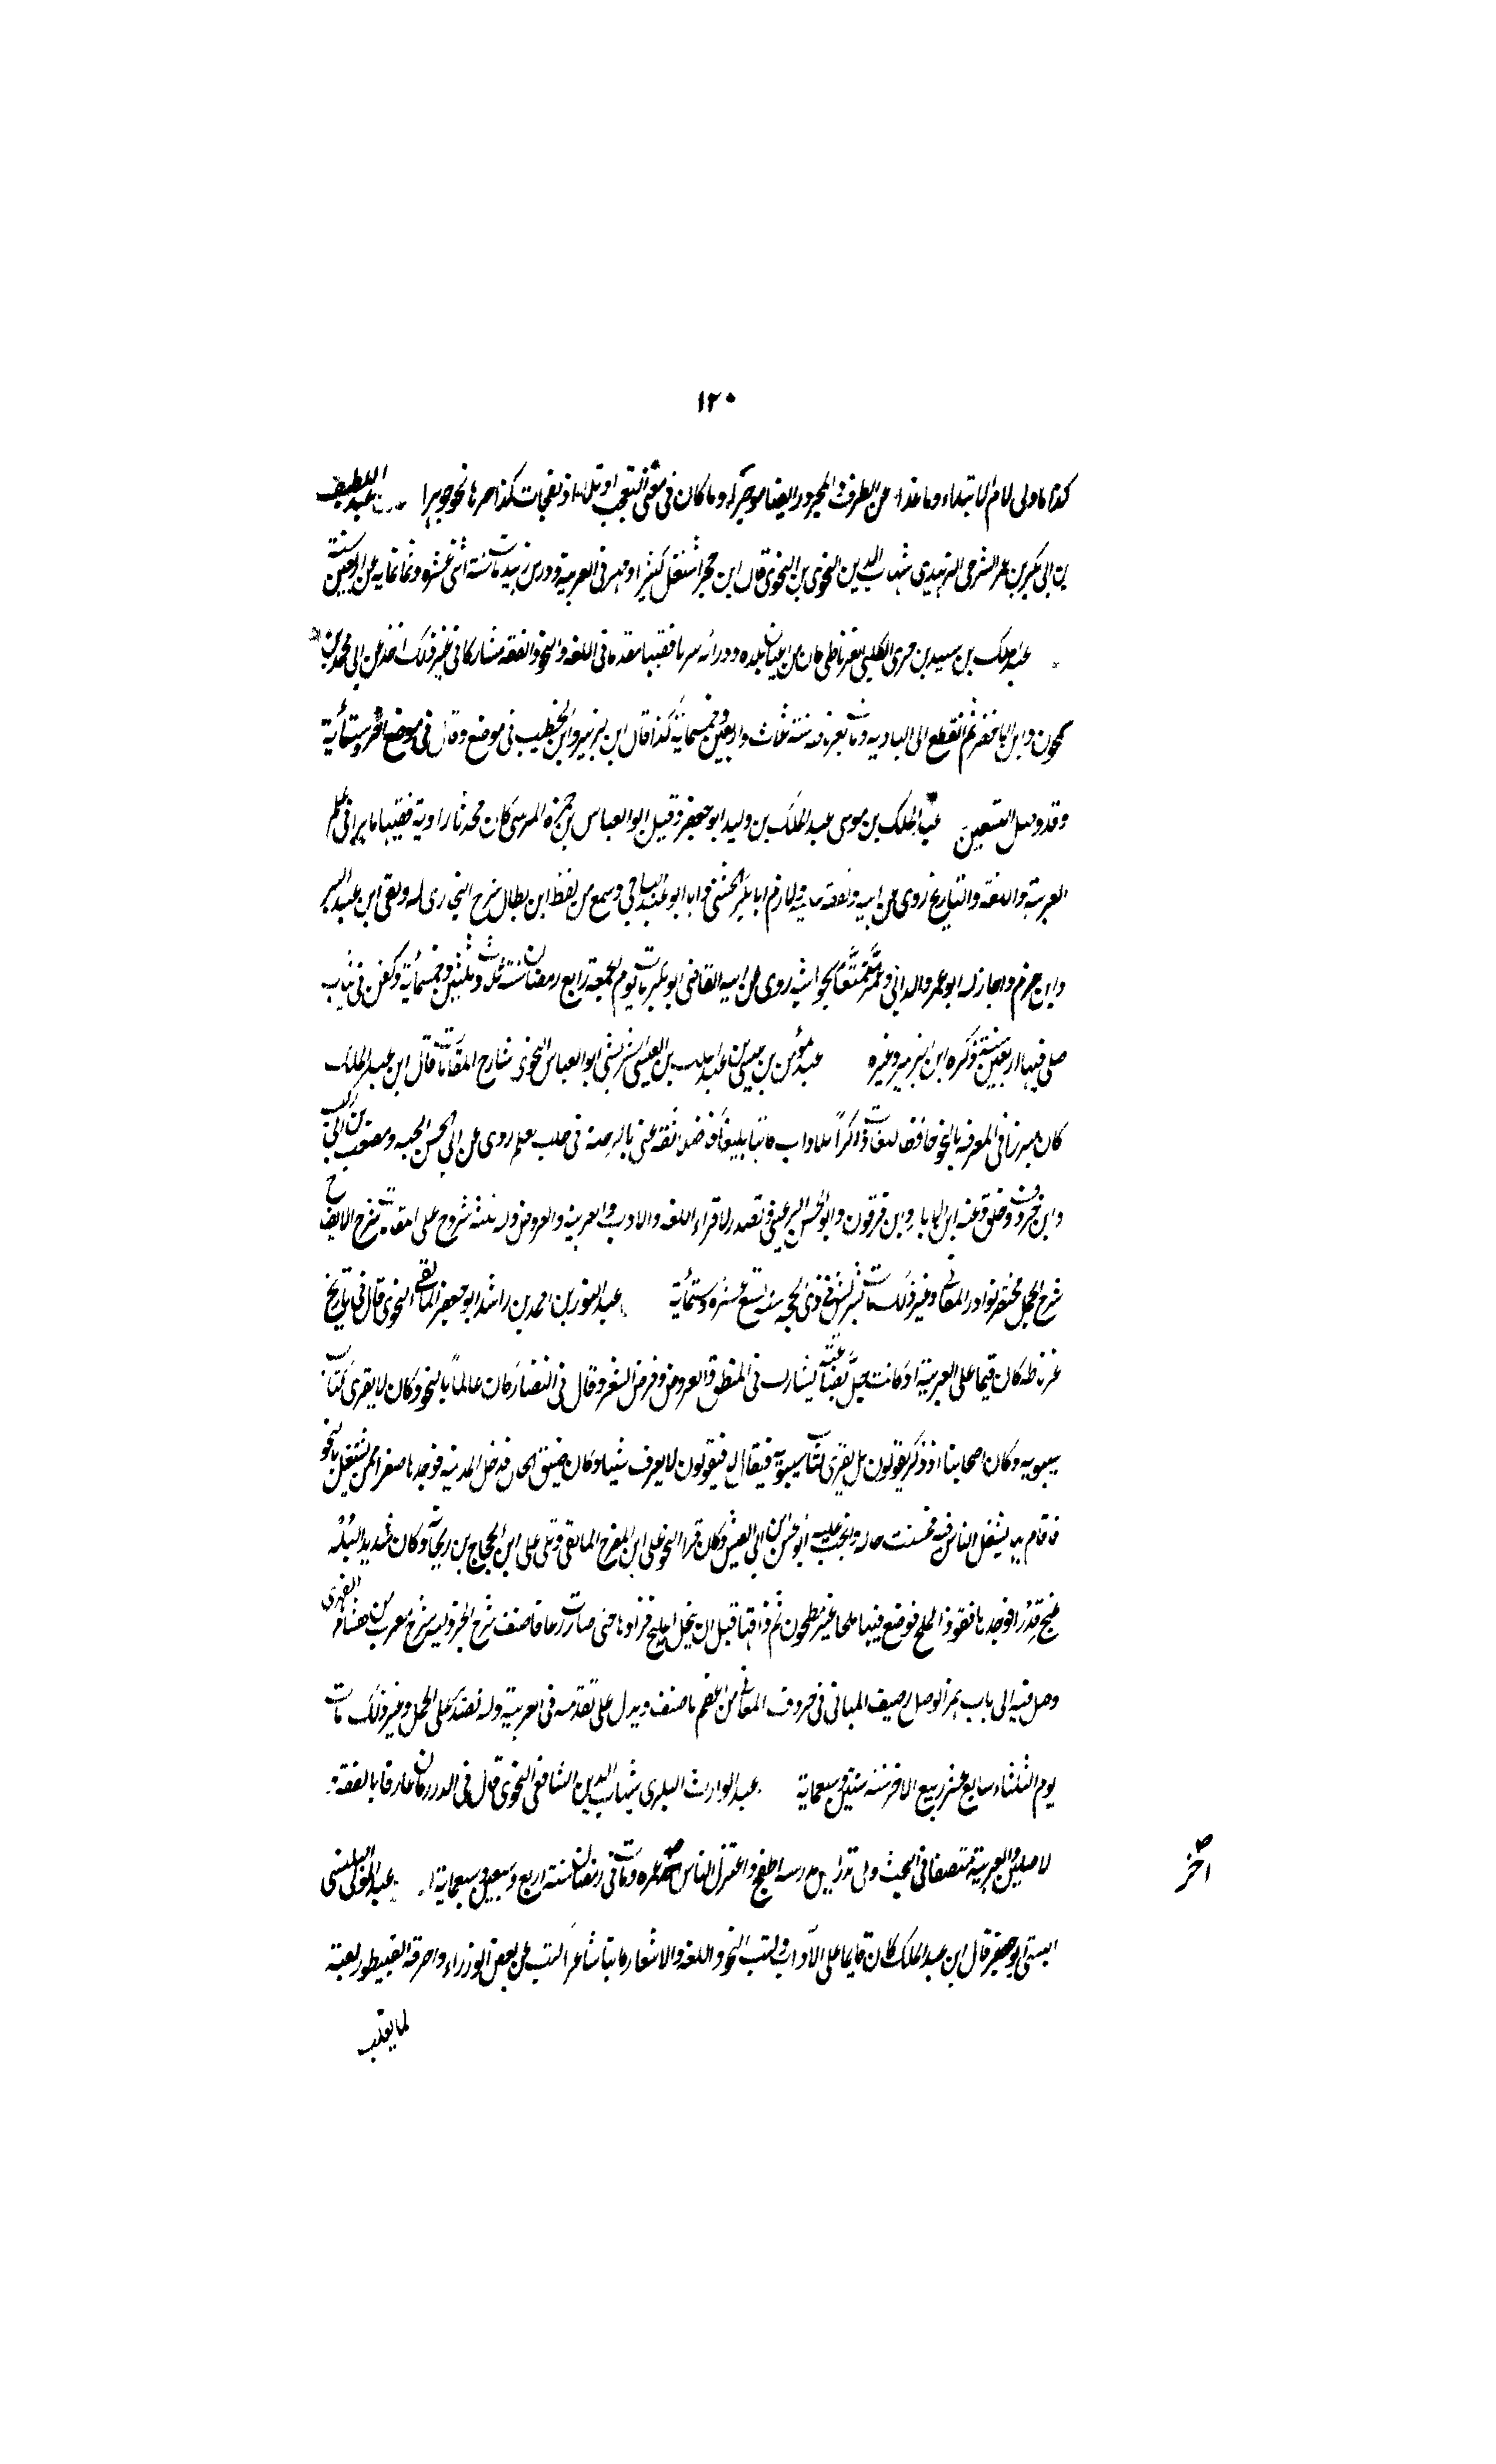 ١٢٠
كذا ما ولى لام الابتداء وما عدا من الظرف والمجرور ايضا موخر له وما كان فى معنى التعجب او تلا اذ فجات كذا صرنا نحو جيرا عبد اللطيف
بن ابى بكر بن عمر الشرجى الزبيدى شهاب الدين النحوى بن النحوى قال ابن حجر اشتغل كثيرا ومهر فى العربية ودرس بزبيد مات سنة اثنى عشره وثمانمايه عن اربعين سنة
عبد الملك بن سعيد بن مرى الكلبى غرناطى كان من اعيان بلده فقيها مقدما فى اللغه والنحو والفقه مشاركا فى غير ذلك اخذ عن ابى محمد بن
سمحون وابى ثم انقطع الى الباديه ومات بغرناطه سنة ثلاث واربعين وخمسماية كذا قال ابن الزبير وابن الخطيب فى موضع وقال فى موضع اخر وستمأية
وقد وصل التسعين عبد الملك بن موسى عبد الملك بن وليد ابو جعفر وقيل ابو العباس بن حمزه المرسى كان محدثا راوية فقيها ماهرا فى علم
العربية واللغة والتاريخ روى عن ابيه وتفقه ولازم ابا بكر الخشنى وابا الوليد الباجى وسمع من لفظ ابن بطال شرح البخارى له ولقى ابن عبد البر
وابن حزم واجاز له ابو عمرو الدانى وعمر ممتعا بحواسه روى عن ابيه القاضى ابو بكر مات يوم الجمعة رابع رمضان سنة ثلاث وثلثين وخمسمأية وكفن فى ثياب
صلى فيها اربعين سنة ذكره ابن الزبير وغيره عبد المؤمن بن موسى بن عبد المؤمن القيسى الشريشى ابو العباس النحوى شارح المقامات قال ابن عبد الملك
كان مبرزا فى المعرفه بالنحو حافظا للغات ذاكرا للاداب كاتبا بليغا فاضلا ثقه عنى بالرحلة فى طلب العلم روى عن ابى الحسن لجبه ومصعب بن ابى ركب
وابن خروف وخلق وعنه ابن الابار وابن فرتون وابو الحسن الرعينى وتصدر لاقراء اللغه والادب والعربية والعروض وله ثلثة شروح على المقامات شرح الايضاح
شرح الجمل مختصر نوادر القالى وغير ذلك مات بشريش فى ذى الحجه سنة تسع عشره وستمأية عبد النور بن احمد بن راشد ابو جعفر المالقى النحوى قال فى تاريخ
غرناطه كان قيما على العربية اذ كانت جل بضاعته يشارك فى المنطق والعروض وقرض الشعر وقال فى النضار كان عالما بالنحو وكان لا يقرى كتاب
سيبويه وكان اصحابنا اذ ذكر يقولون هل يقرى كتاب سيبويه فيقال لا فيقولون لا يعرف شيئا وكان ضيق الحال فدخل المدينه فوجدها صفرا ممن يشتغل بالنحو
فاقام بها يشغل الناس فيه فحسنت حاله وانجب عليه ابو الحسن بن ابى العيش وكان قرا النحو على ابن المفرح المالقى وتلى على ابى الحجاج بن ريحانه وكان شديد البله
طبخ قدرا فوجدها تفوز الملح فوضع فيها ملحا غير مطحون ثم ذاقها قبل ان ينحل الملح فزادها حتى صارت زعاقا صنف شرح الجزوليه شرح مغرب بن هشام الفهرى
وصل فيه الى باب همز الوصل رصف المبانى فى حروف المعانى من اعظم ما صنف ويدل على تقدمه فى العربية وله تقييد على الجمل وغير ذلك مات
يوم الثلثاء سابع عشر ربيع الاخر سنة ثنتين وسبعماية عبد الوارث البكرى شهاب الدين الشافعى النحوى قال فى الدرر كان عارفا بالفقه و
الاصلين والعربية منصفا فى البحث ولى تدريس مدرسه اطفيح واعتزل الناس عمره ومات فى رمضان سنة اربع وسبعين وسبعماية عبد المولى البلنسى
البستى ابو جعفر قال ابن عبد الملك كان قايما على الآداب وكتب النحو واللغه والاشعار كاتبا شاعرا كتب عن بعض الوزراء واحرقه القبيطور لعنة
لما تغلب
صح
اخر